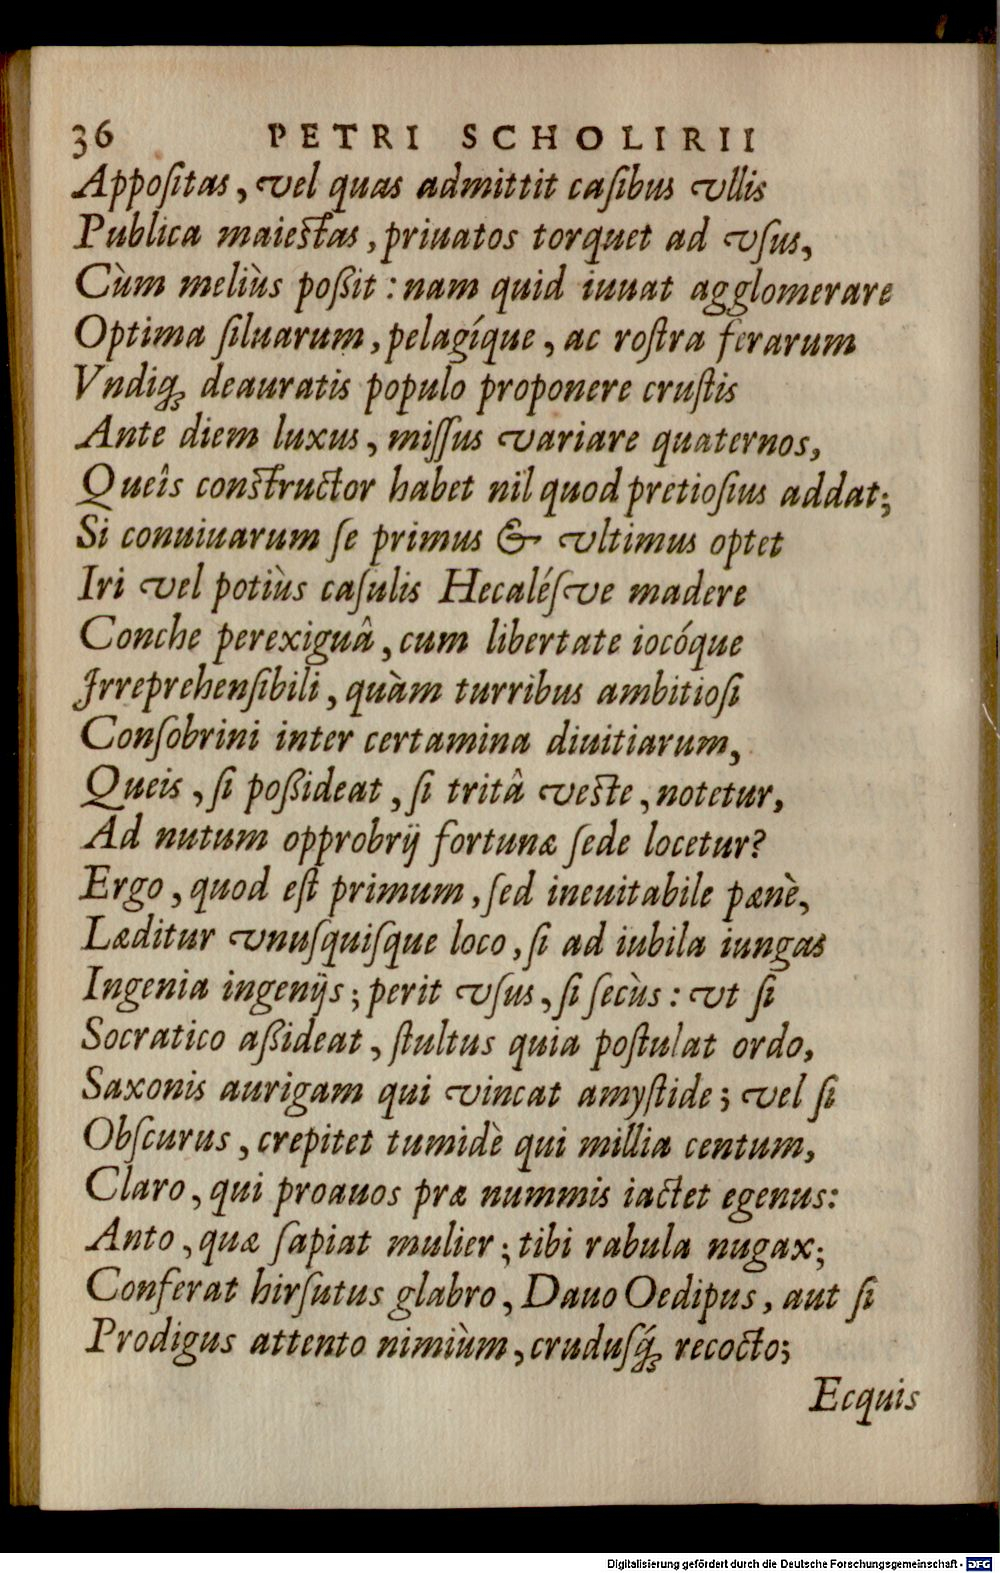 36 PETRI SCHOLIRII
Appoſitas, vel quas admittit caſibus vllis
Publica maieſtas, priuatos torquet ad vſus,
Cùm meliùs poßit: nam quid iuuat agglomerare
Optima ſiluarum, pelagíque, ac roſtra ferarum
Vndiq; deauratis populo proponere cruſtis
Ante diem luxus, miſſus variare quaternos,
Queîs conſtructor habet nil quod pretioſius addat;
Si conuiuarum ſe primus & vltimus optet
Iri vel potiùs caſulis Hecaléſve madere
Conche perexiguâ, cum libertate iocóque
Irreprehenſibili, quàm turribus ambitioſi
Conſobrini inter certamina diuitiarum,
Queis, ſi poßideat, ſi tritâ veſte, notetur,
Ad nutum opprobrij fortunæ ſede locetur?
Ergo, quod eſt primum, ſed ineuitabile pænè,
Læditur vnuſquiſque loco, ſi ad iubila iungas
Ingenia ingenijs; perit vſus, ſi ſecùs: vt ſi
Socratico aßideat, ſtultus quia poſtulat ordo,
Saxonis aurigam qui vincat amyſtide; vel ſi
Obſcurus, crepitet tumidè qui millia centum,
Claro, qui proauos præ nummis iactet egenus:
Anto, quæ ſapiat mulier; tibi rabula nugax;
Conferat hirſutus glabro, Dauo Oedipus, aut ſi
Prodigus attento nimiùm, cruduſq́; recocto;
Ecquis
Digitalisierung gefördert durch die Deutsche Forschungsgemeinschaft - DFG